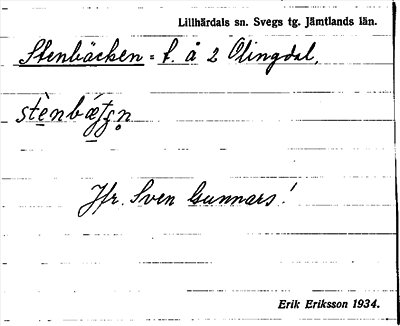 Lillhärdals sn. Svegs tg. Jämtlands län.
Stenbäcken = t. å 2 Olingdal.
stènbǽtʃn̥
Jfr. Sven Gunnars!
Erik Eriksson 1934.